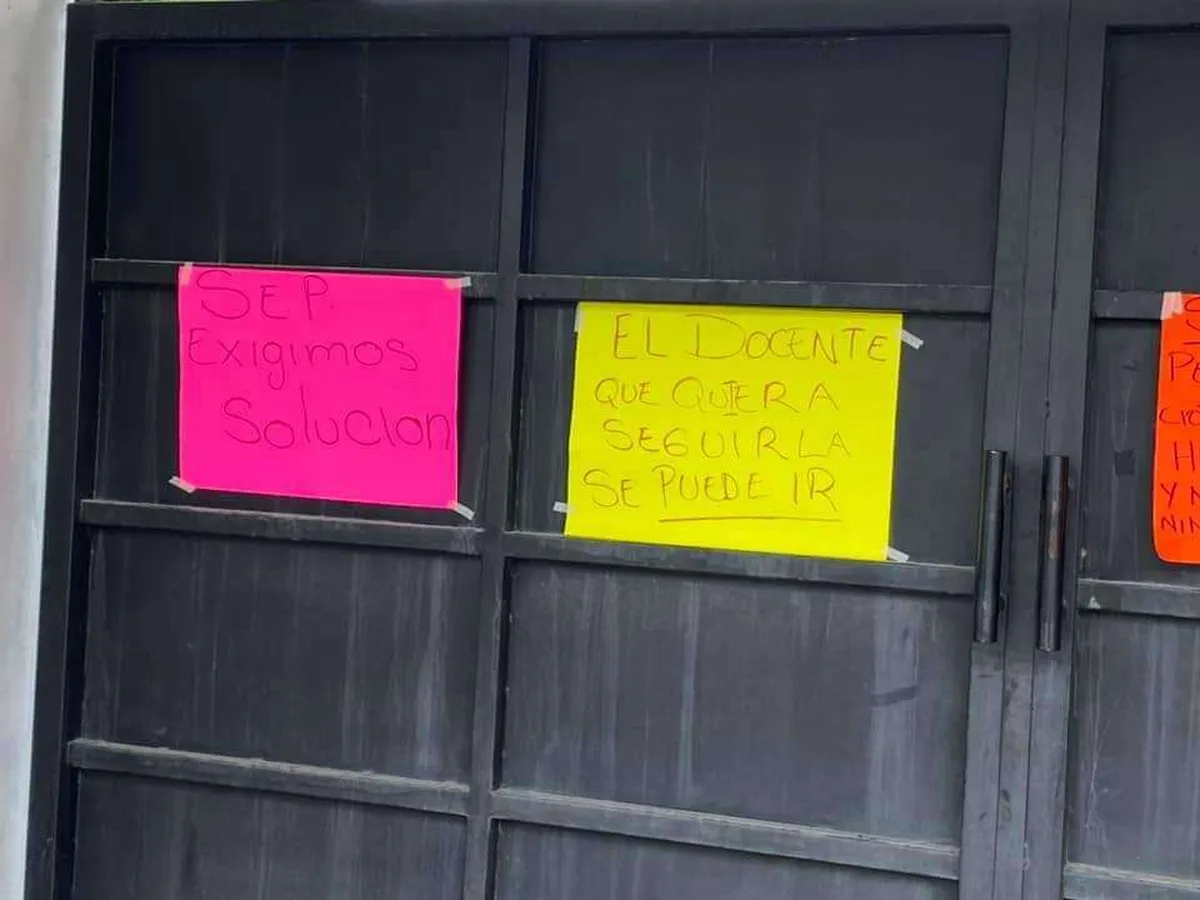 SEP.
Exigimos
Solucion
EL DOCENTE
QUE QUIERA
SEGUIRLA
SE PUEDE IR